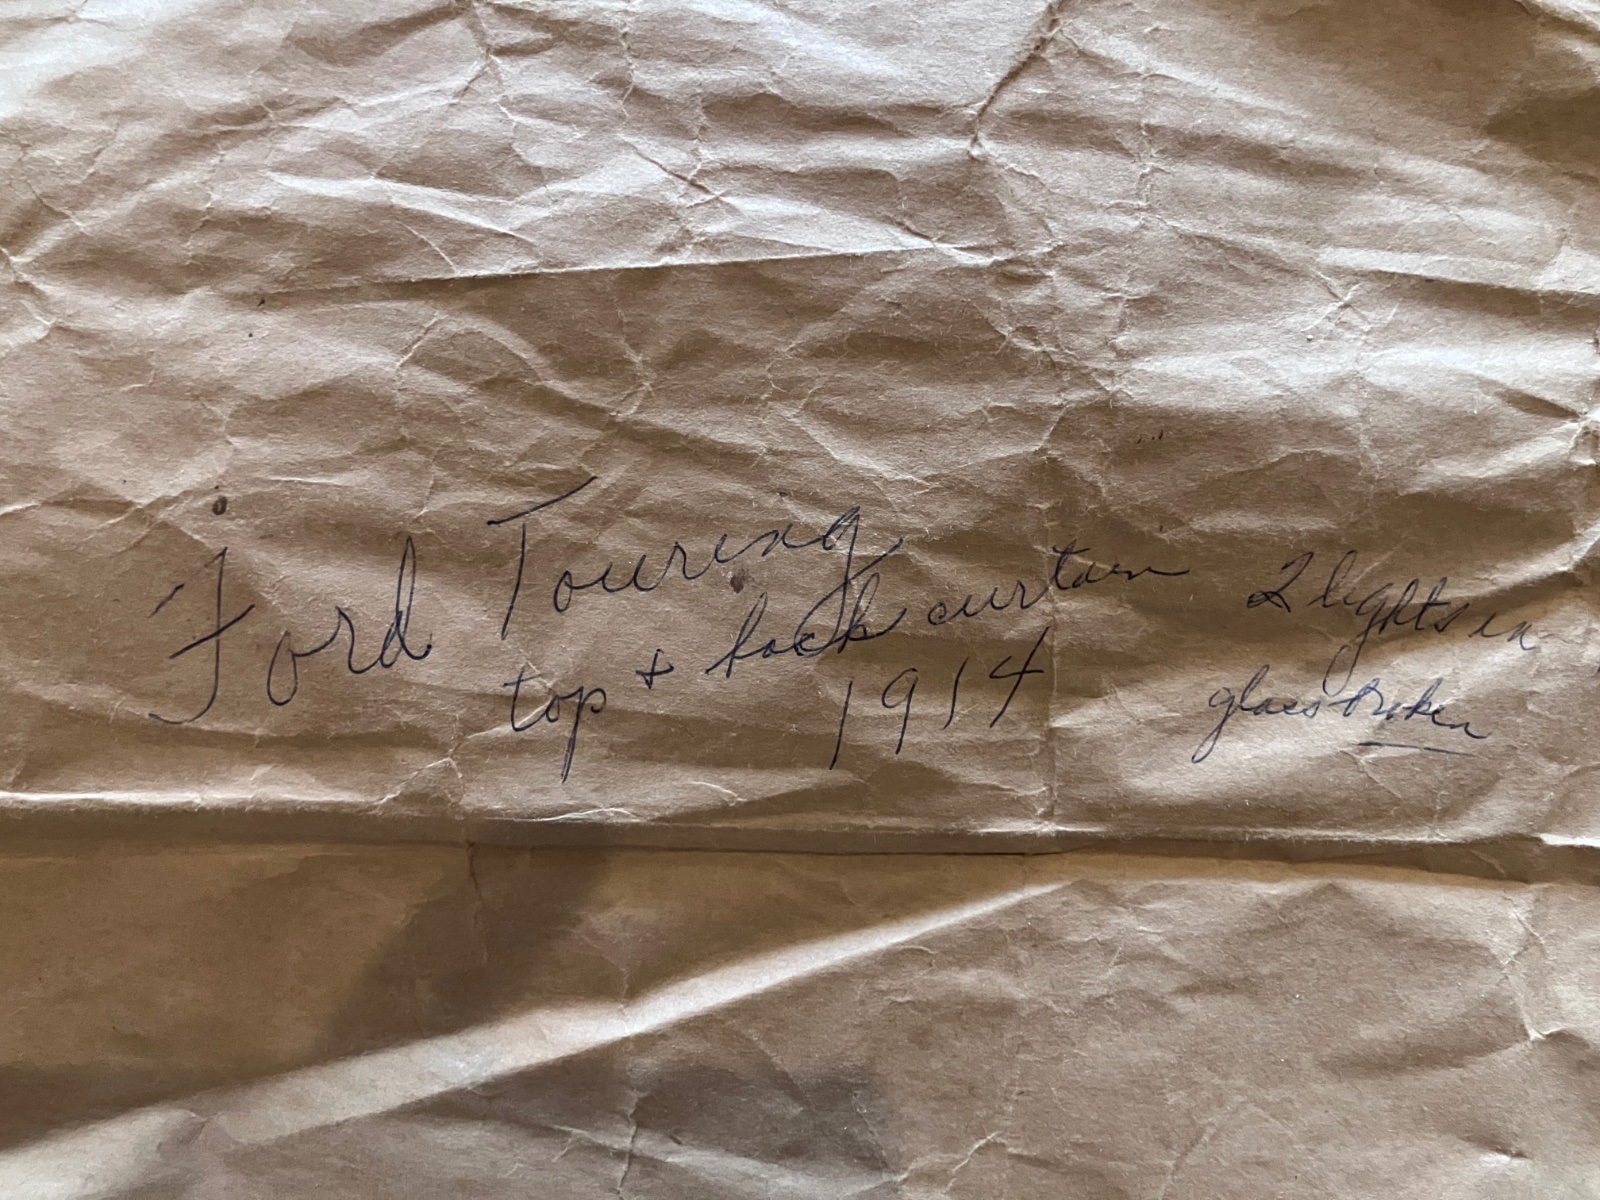 Ford Touring
top + back curtain 2 lights in
1914 glass broken